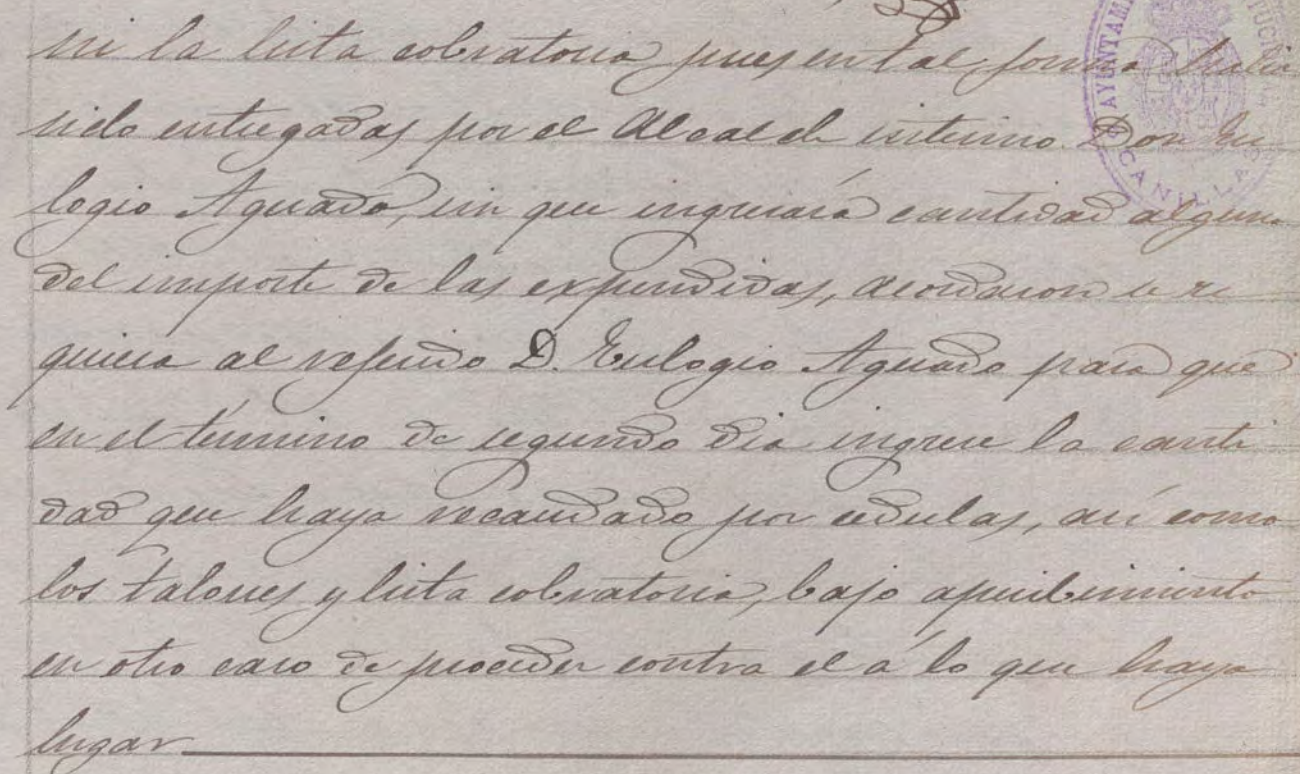 ni la lista cobratoria pues en tal forma habia
sido entregadas por el Alcalde interino Don Eu
logio Aguado, sin que ingresará cantidad alguna
del importe de las expendidas, acordaron se re
quiera al referido D. Eulogio Aguado para que
en el término de segundo dia ingrese la canti
dad que haya recaudado por cedulas, asi como
los talones y lista cobratoria, bajo apercibimiento
en otro caso de proceder contra el á lo que haya
lugar
AYUNTAM
CANILLAS